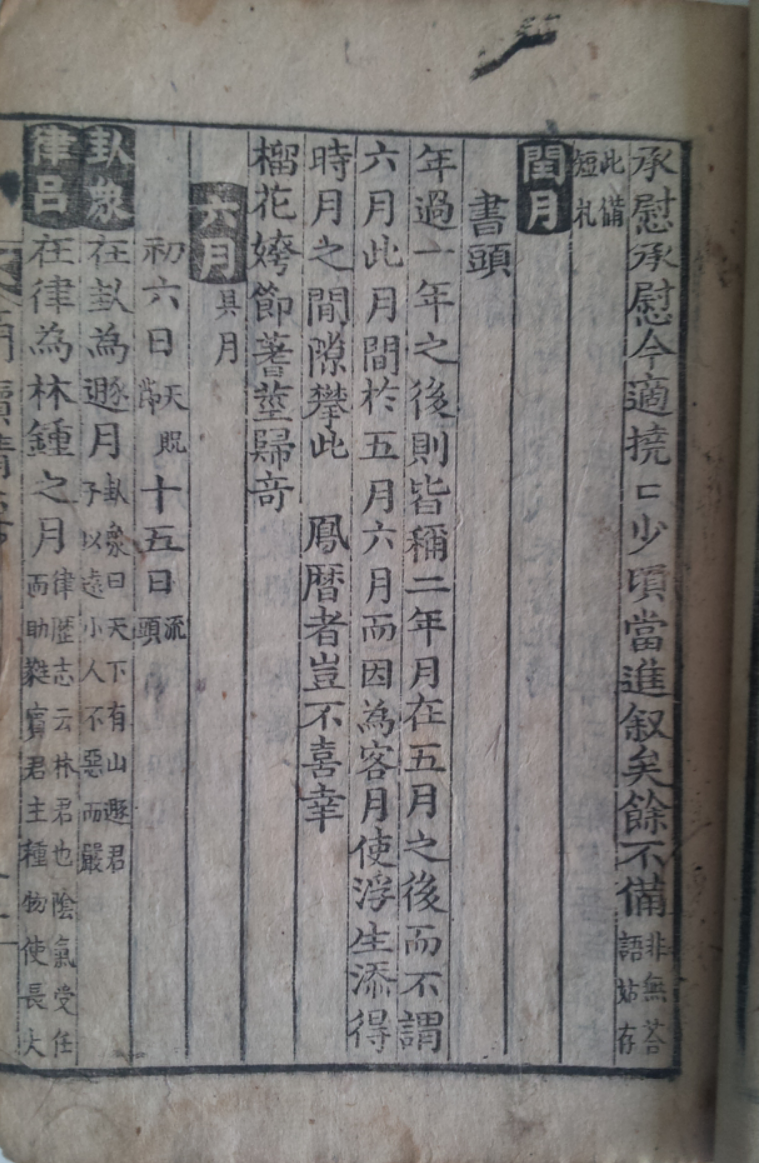 承慰承慰今適撓口少頃當進叙矣餘不備非無荅語姑存
此備短札
閏月
書頭
年過一年之後則皆稱二年月在五月之後而不謂
六月此月間於五月六月而因為客月使浮生添得
時月之間隙攀此 鳳曆者豈不喜幸
榴花娇節蓍莖歸奇
六月 具月
初六日天貺節十五日流頭
卦象 在卦為遯月卦象曰天下有山遯君子以遠小人不惡而嚴
律呂 在律為林鍾之月律歷志云林君也陰氣受任而助蕤賓君主種物使長大